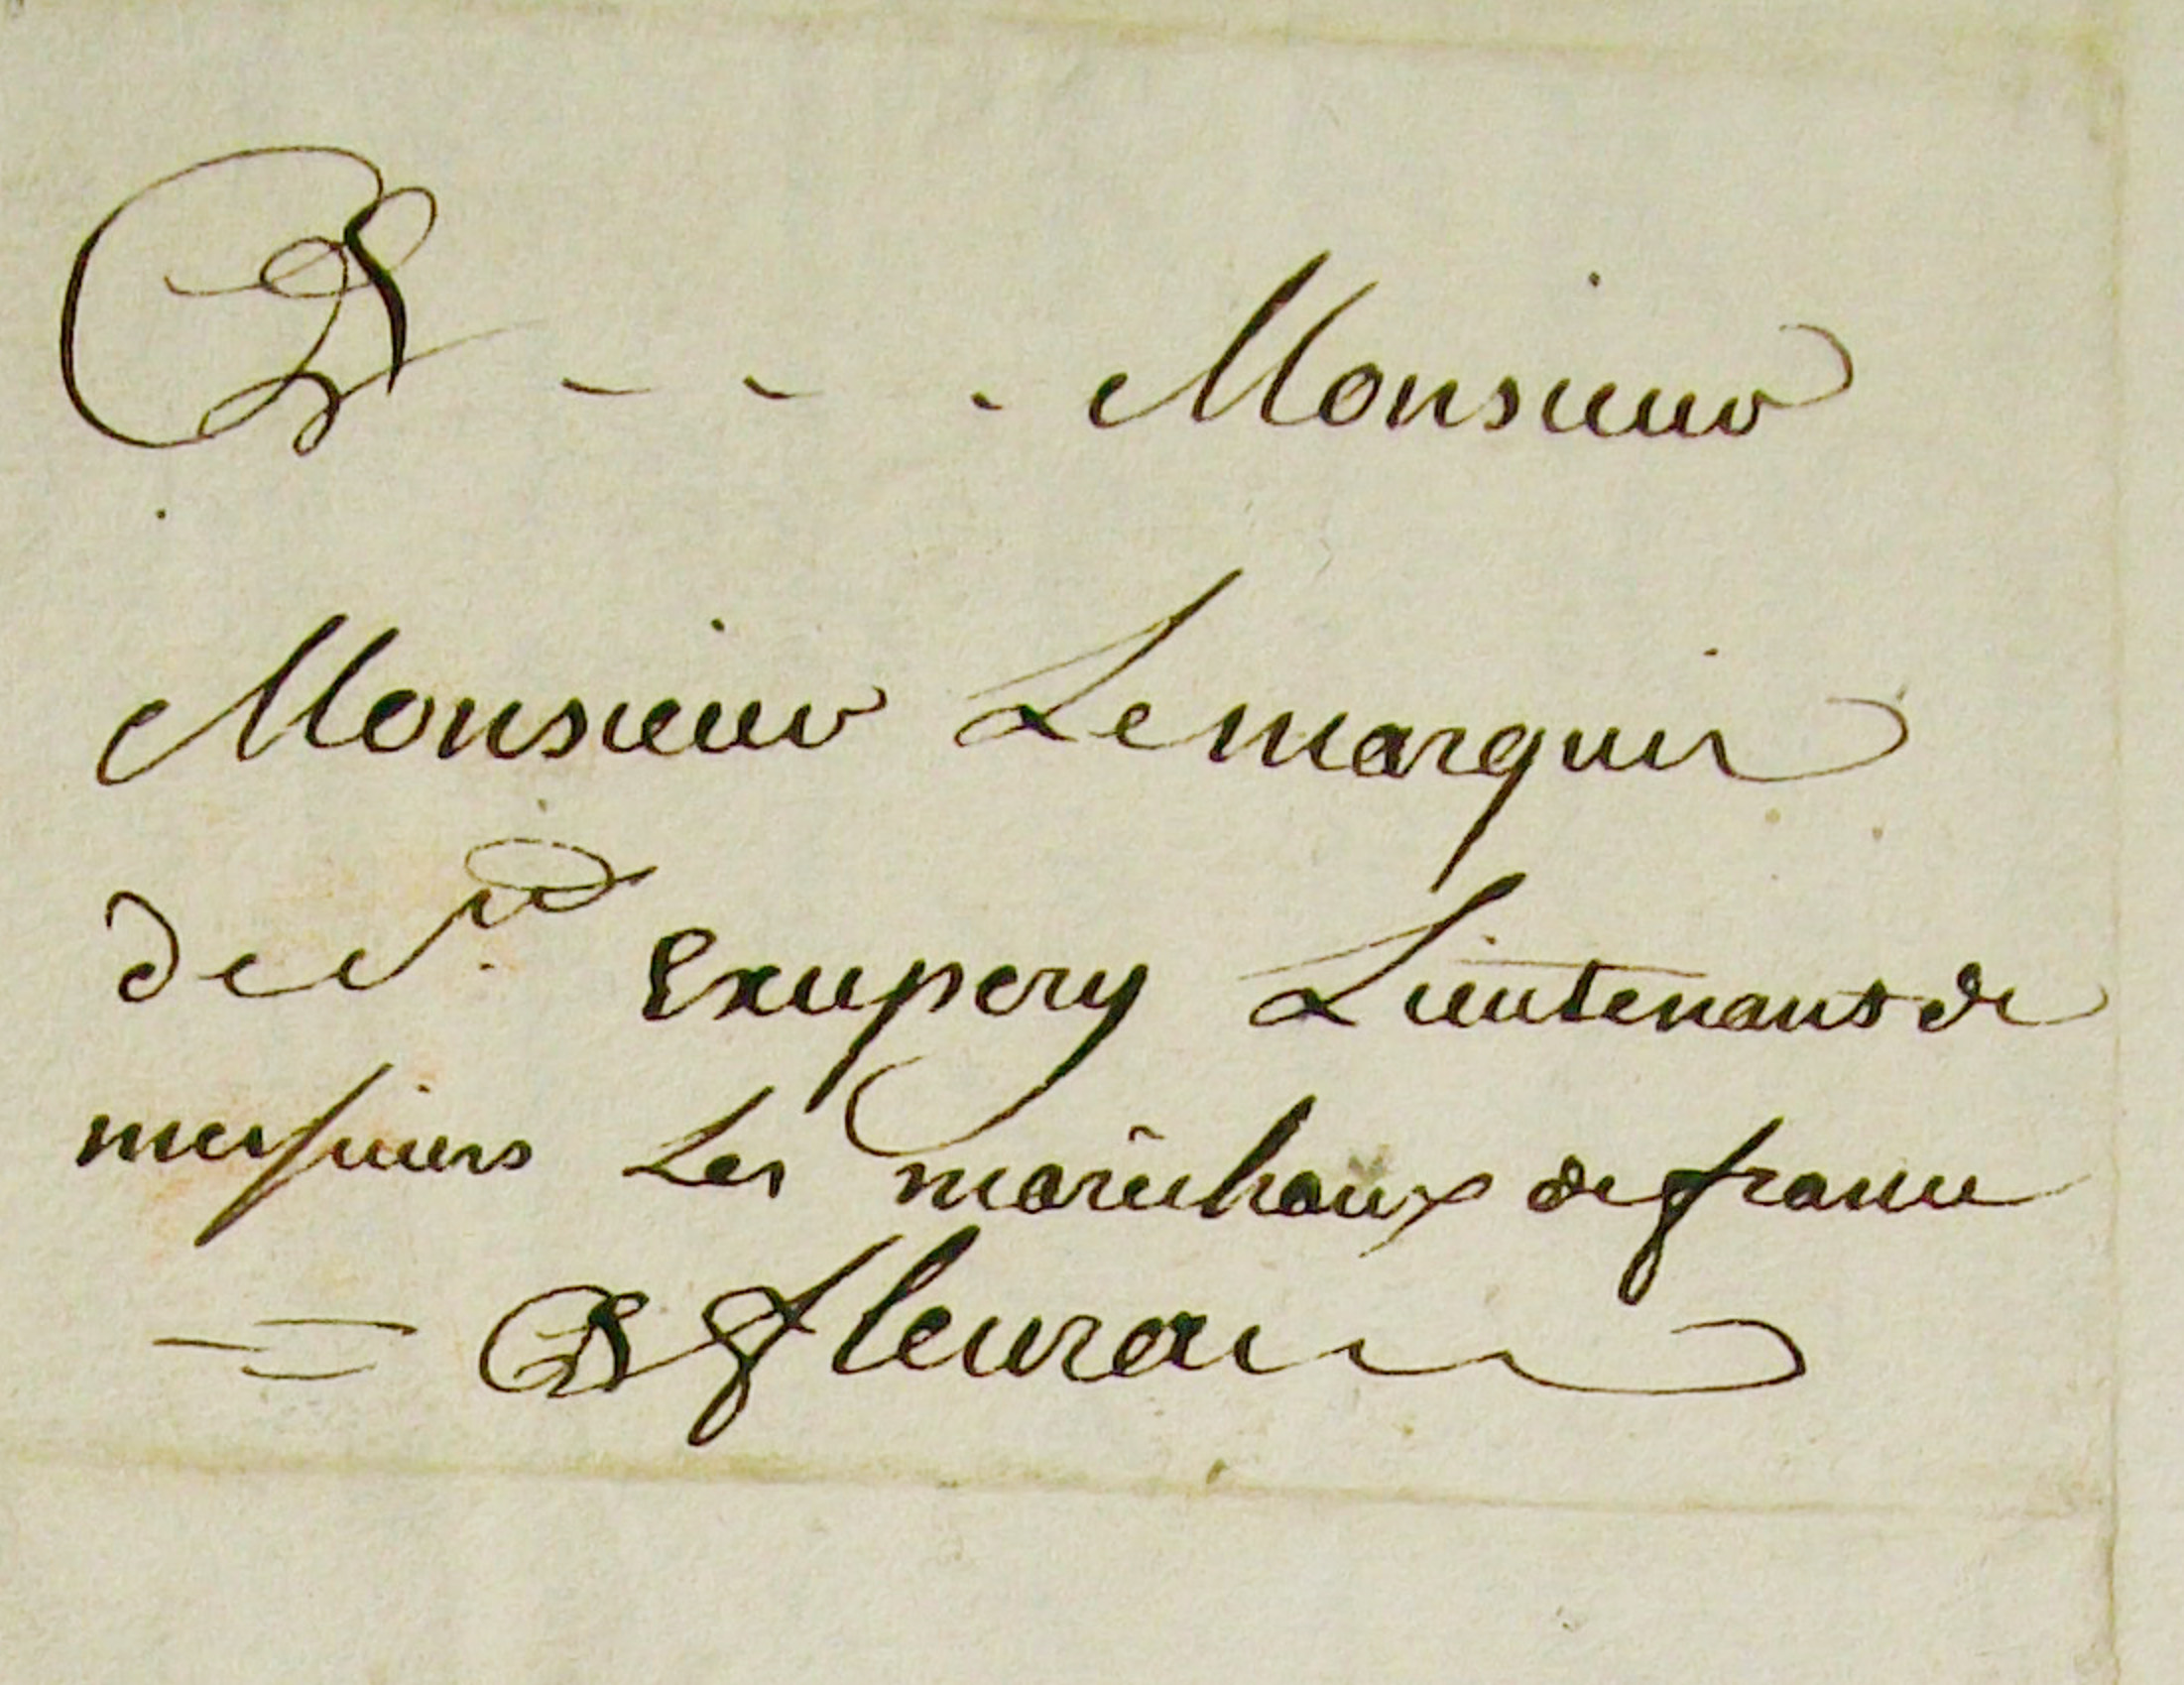 A - - - Monsieur
Monsieur Le marquis
de St. Exupery Lieutenant de
messieurs Les maréchaux de france
= A fleurance